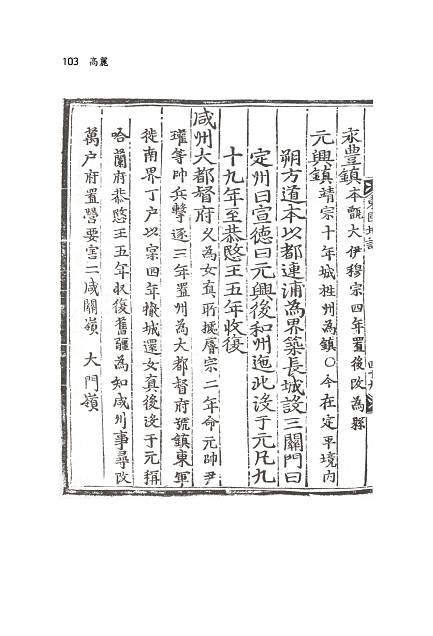 103 高麗
永豐鎮 本甑大伊穆宗四年置後改為縣
元興鎮 靖宗十年城狌州為鎮○今在定平境内
朔方道本以都連浦為界築長城設三關門曰
定州曰宣德曰元興後和州迤北沒于元凡九
十九年至恭愍王五年收復
咸州大都督府 乆為女真所據睿宗二年命元帥尹
瓘等帥兵擊逐三年置州為大都督府號鎮東軍
徙南界丁户以宲四年撤城還女真後沒于元稱
哈蘭府恭愍王五年収復舊疆為知咸州事尋改
萬户府置營要害二咸關嶺 大門嶺